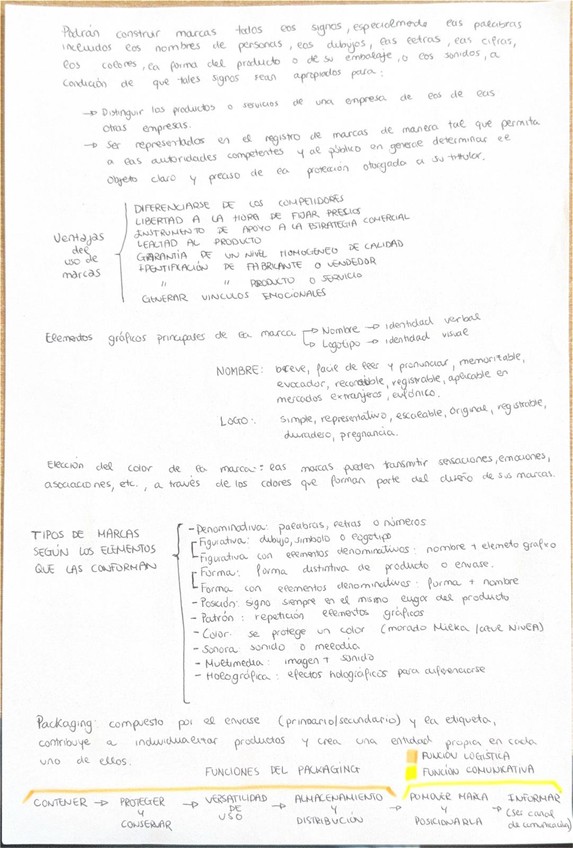 Podrán construir marcas todos los signos, especialmente las palabras
incluidos los nombres de personas, los dibujos, las letras, las cifras,
los colores, la forma del producto o de su embalaje, o los sonidos, a
condición de que tales signos sean apropiados para:
→ Distinguir los productos o servicios de una empresa de los de las
otras empresas.
→ Ser representados en el registro de marcas de manera tal que permita
a las autoridades competentes y al público en general determinar el
objeto claro y preciso de la protección otorgada a su titular.
Ventajas
del
uso de
marcas
DIFERENCIARSE DE LOS COMPETIDORES
LIBERTAD A LA HORA DE FIJAR PRECIOS
INSTRUMENTO DE APOYO A LA ESTRATEGIA COMERCIAL
LEALTAD AL PRODUCTO
GARANTÍA DE UN NIVEL HOMOGÉNEO DE CALIDAD
IDENTIFICACIÓN DE FABRICANTE O VENDEDOR
" " PRODUCTO O SERVICIO
GENERAR VINCULOS EMOCIONALES
Elementos gráficos principales de la marca → Nombre → identidad verbal
→ Logotipo → identidad visual
NOMBRE: breve, facil de leer y pronunciar, memorizable,
evocador, recordable, registrable, aplicable en
mercados extranjeros, eufónico.
LOGO: simple, representativo, escalable, original, registrable,
duradero, pregnancia.
Elección del color de la marca: las marcas pueden transmitir sensaciones, emociones,
asociaciones, etc., a través de los colores que forman parte del diseño de sus marcas.
TIPOS DE MARCAS
SEGÚN LOS ELEMENTOS
QUE LAS CONFORMAN
- Denominativa: palabras, letras o números
Figurativa: dibujo, simbolo o logotipo
Figurativa con elementos denominativos: nombre + elemeto grafico
Forma: forma distintiva de producto o envase.
Forma con elementos denominativos: forma + nombre
- Posición: signo siempre en el mismo lugar del producto
- Patrón: repetición elementos gráficos
- Color: se protege un color (morado Milka / azul NIVEA)
- Sonora: sonido o melodía
- Multimedia: imagen + sonido
- Holográfica: efectos holográficos para diferenciarse
Packaging: compuesto por el envase (primario/secundario) y la etiqueta,
contribuye a individualizar productos y crea una entidad propia en cada
uno de ellos.
FUNCIÓN LOGÍSTICA
FUNCIÓN COMUNICATIVA
FUNCIONES DEL PACKAGING
CONTENER → PROTEGER
Y
CONSERVAR → VERSATILIDAD
DE
USO → ALMACENAMIENTO
Y
DISTRIBUCIÓN → POMOVER MARCA
Y
POSICIONARLA → INFORMAR
(Ser canal
de comunicación)